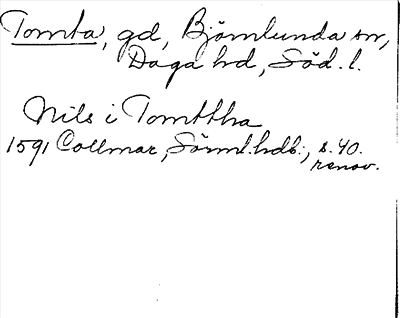 Tomta, gd, Björnlunda sn,
Daga hd, Söd. l.
Nils i Tomttha
1591 Collmar, Sörml. hdl:, s. 40.
renov.